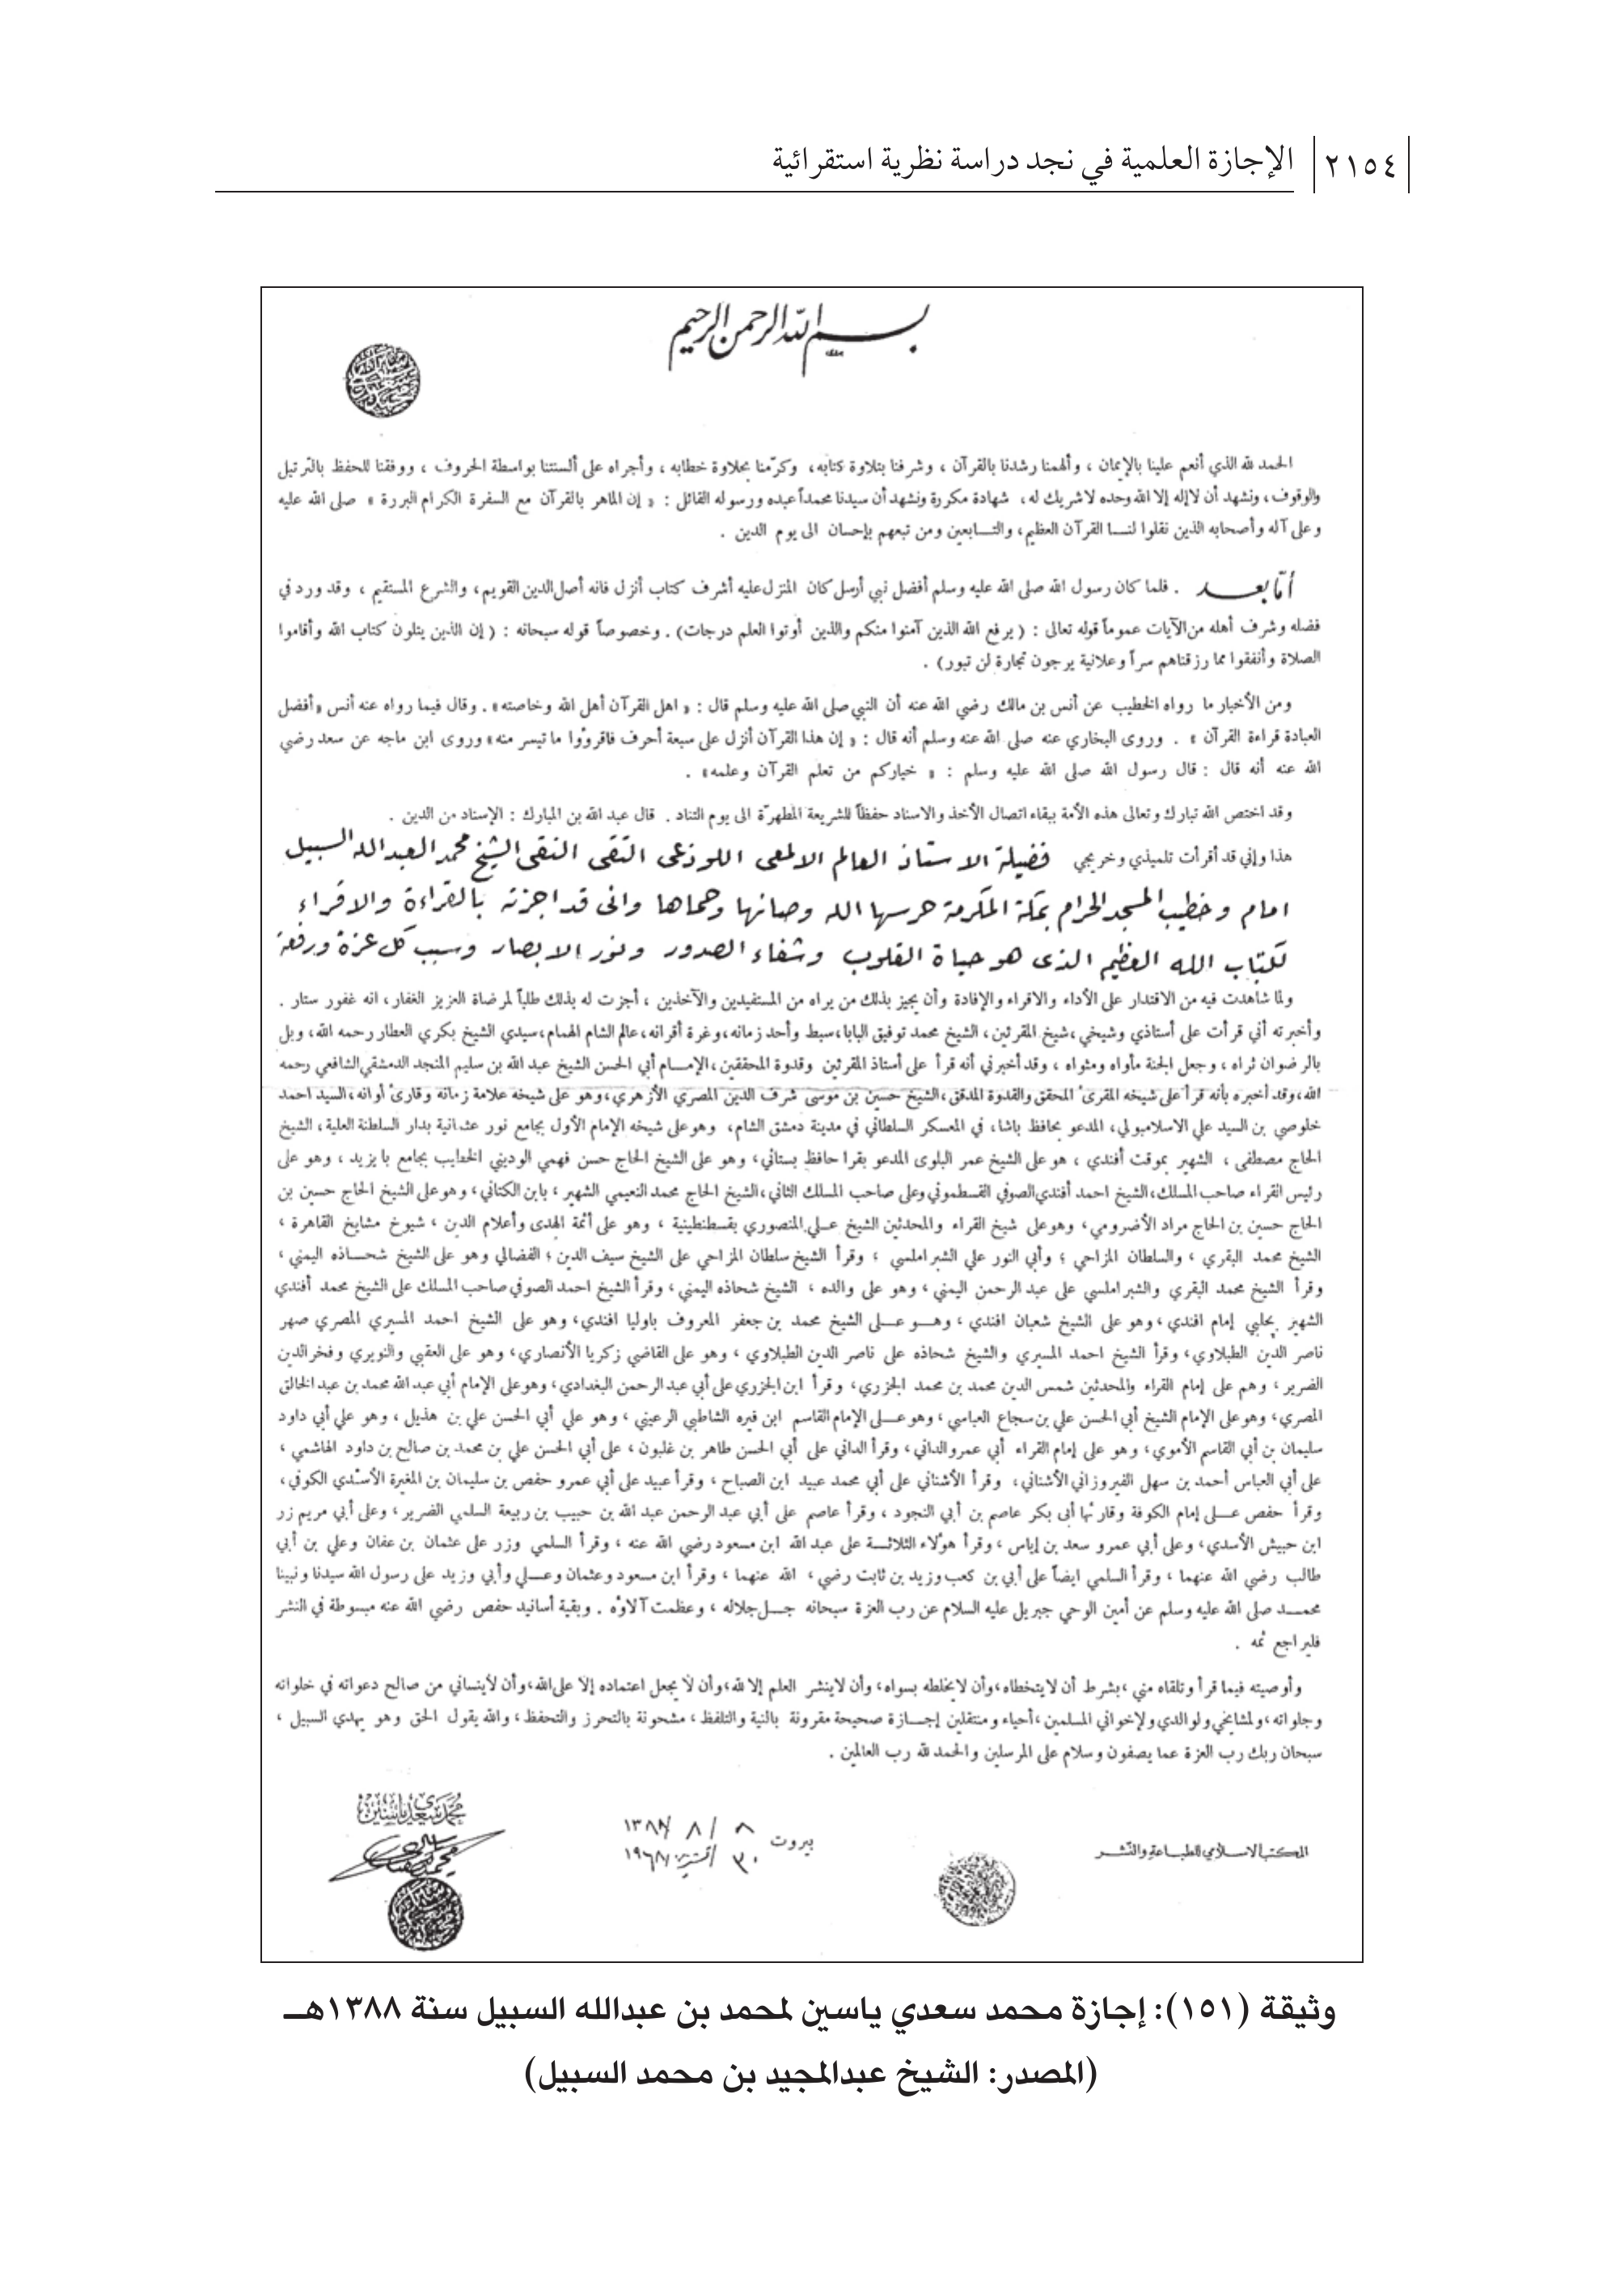 ٢١٥٤ الإجازة العلمية في نجد دراسة نظرية استقرائية
بسم الله الرحمن الرحيم
الحمد لله الذي أنعم علينا بالإيمان ، وألهمنا رشدنا بالقرآن ، وشرفنا بتلاوة كتابه، وكرّمنا بحلاوة خطابه ، وأجراه على ألسنتنا بواسطة الحروف ، ووفقنا للحفظ بالترتيل
والوقوف، ونشهد أن لا إله إلا الله وحده لا شريك له، شهادة مكررة ونشهد أن سيدنا محمداً عبده ورسوله القائل : « إن الماهر بالقرآن مع السفرة الكرام البررة » صلى الله عليه
وعلى آله وأصحابه الذين نقلوا لنا القرآن العظيم، والتابعين ومن تبعهم بإحسان الى يوم الدين .
أمّا بعد . فلما كان رسول الله صلى الله عليه وسلم أفضل نبي أرسل كان المنزل عليه أشرف كتاب أنزل فانه أصل الدين القويم، والشرع المستقيم ، وقد ورد في
فضله وشرف أهله من الآيات عموماً قوله تعالى : ( يرفع الله الذين آمنوا منكم والذين أوتوا العلم درجات) . وخصوصاً قوله سبحانه : ( إن الذين يتلون كتاب الله وأقاموا
الصلاة وأنفقوا مما رزقناهم سراً وعلانية يرجون تجارة لن تبور) .
ومن الأخبار ما رواه الخطيب عن أنس بن مالك رضي الله عنه أن النبي صلى الله عليه وسلم قال : « اهل القرآن أهل الله وخاصته» . وقال فيما رواه عنه أنس «أفضل
العبادة قراءة القرآن » . وروى البخاري عنه صلى الله عنه وسلم أنه قال : « إن هذا القرآن أنزل على سبعة أحرف فاقرؤوا ما تيسر منه» وروى ابن ماجه عن سعد رضي
الله عنه أنه قال : قال رسول الله صلى الله عليه وسلم : « خياركم من تعلم القرآن وعلمه» .
وقد اختص الله تبارك وتعالى هذه الأمة ببقاء اتصال الأخذ والاسناد حفظاً للشريعة المطهرّة الى يوم التناد . قال عبد الله بن المبارك : الإسناد من الدين .
هذا وإني قد أقرأت تلميذي وخريجي فضيلة الاستاذ العالم الالمعى اللوذعى التقى النقى الشيخ محمد العبد الله السبيل
امام وخطيب المسجد الحرام بمكة المكرمة حرسها الله وصانها وحماها وانى قد اجزته بالقراءة والاقراء
لكتاب الله العظيم الذى هو حياة القلوب وشفاء الصدور ونور الابصار وسبب كل عزة ورفعة
ولما شاهدت فيه من الاقتدار على الأداء والاقراء والإفادة وأن يجيز بذلك من يراه من المستفيدين والآخذين ، أجزت له بذلك طلباً لمرضاة العزيز الغفار، انه غفور ستار .
وأخبرته أني قرأت على أستاذي وشيخي، شيخ المقرئين، الشيخ محمد توفيق البابا، سبط وأحد زمانه، وغرة أقرانه، عالم الشام الهمام، سيدي الشيخ بكري العطار رحمه الله، وبل
بالرضوان ثراه ، وجعل الجنة مأواه ومثواه ، وقد أخبرني أنه قرأ على أستاذ المقرئين وقدوة المحققين، الإمام أبي الحسن الشيخ عبد الله بن سليم المنجد الدمشقي الشافعي رحمه
الله، وقد أخبره بأنه قرأ على شيخه المقرئ المحقق والقدوة المدقق، الشيخ حسين بن موسى شرف الدين المصري الأزهري، وهو على شيخه علامة زمانه وقارئ أوانه، السيد احمد
خلوصي بن السيد علي الاسلامبولي، المدعو بحافظ باشا، في المعسكر السلطاني في مدينة دمشق الشام، وهو على شيخه الإمام الأول بجامع نور عثمانية بدار السلطنة العلية، الشيخ
الحاج مصطفى ، الشهير بموقت أفندي ، هو على الشيخ عمر البلوى المدعو بقرا حافظ بستاني، وهو على الشيخ الحاج حسن فهمي الوديني الخطايب بجامع با يزيد ، وهو على
رئيس القراء صاحب المسلك، الشيخ احمد أفندي الصوفي القسطموني وعلى صاحب المسلك الثاني، الشيخ الحاج محمد النعيمي الشهير ، بابن الكتاني، وهو على الشيخ الحاج حسين بن
الحاج حسين بن الحاج مراد الأضرومي، وهو على شيخ القراء والمحدثين الشيخ علي المنصوري بقسطنطينية ، وهو على أئمة الهدى وأعلام الدين ، شيوخ مشايخ القاهرة ،
الشيخ محمد البقري ، والسلطان المزاحي ؛ وأبي النور علي الشبراملسي ، وقرأ الشيخ سلطان المزاحي على الشيخ سيف الدين ؛ الفضالي وهو على الشيخ شحاذه اليمني ،
وقرأ الشيخ محمد البقري والشبراملسي على عبد الرحمن اليمني ، وهو على والده ، الشيخ شحاذه اليمني ، وقرأ الشيخ احمد الصوفي صاحب المسلك على الشيخ محمد أفندي
الشهير بحلبي إمام افندي ، وهو على الشيخ شعبان افندي ، وهو على الشيخ محمد بن جعفر المعروف باوليا افندي، وهو على الشيخ احمد المسيري المصري صهر
ناصر الدين الطبلاوي، وقرأ الشيخ احمد المسيري والشيخ شحاذه على ناصر الدين الطبلاوي ، وهو على القاضي زكريا الأنصاري، وهو على العقبي والنويري وفخر الدين
الضرير ، وهم على إمام القراء والمحدثين شمس الدين محمد بن محمد الجزري، وقرأ ابن الجزري على أبي عبد الرحمن البغدادي، وهو على الإمام أبي عبد الله محمد بن عبد الخالق
المصري، وهو على الإمام الشيخ أبي الحسن علي بن سجاع العباسي ، وهو على الإمام القاسم ابن فيره الشاطبي الرعيني ، وهو علي أبي الحسن علي بن هذيل ، وهو علي أبي داود
سليمان بن أبي القاسم الأموي، وهو على إمام القراء أبي عمرو الداني، وقرأ الداني على أبي الحسن طاهر بن غلبون ، على أبي الحسن علي بن محمد بن صالح بن داود الهاشمي ،
على أبي العباس أحمد بن سهل الفيروزاني الأشناني، وقرأ الأشناني على أبي محمد عبيد ابن الصباح ، وقرأ عبيد على أبي عمرو حفص بن سليمان بن المغيرة الأسدي الكوفي،
وقرأ حفص على إمام الكوفة وقارئها أبى بكر عاصم بن أبي النجود ، وقرأ عاصم على أبي عبد الرحمن عبد الله بن حبيب بن ربيعة السلمي الضرير، وعلى أبي مريم زر
ابن حبيش الأسدي، وعلى أبي عمرو سعد بن إياس ، وقرأ هؤلاء الثلاثة على عبد الله ابن مسعود رضي الله عنه ، وقرأ السلمي وزر على عثمان بن عفان وعلي بن أبي
طالب رضي الله عنهما ، وقرأ السلمي ايضاً على أبي بن كعب وزيد بن ثابت رضي، الله عنهما ، وقرأ ابن مسعود وعثمان وعلي وأبي وزيد على رسول الله سيدنا ونبينا
محمد صلى الله عليه وسلم عن أمين الوحي جبريل عليه السلام عن رب العزة سبحانه جل جلاله ، وعظمت آلاؤه . وبقية أسانيد حفص رضي الله عنه مبسوطة في النشر
فليراجع ثمه .
وأوصيته فيما قرأ وتلقاه مني، بشرط أن لا يتخطاه، وأن لا يخلطه بسواه، وأن لا ينشر العلم إلا لله، وأن لا يجعل اعتماده إلا على الله، وأن لا ينساني من صالح دعواته في خلواته
وجلواته، ولمشايخي ولوالدي ولإخواني المسلمين، أحياء ومنتقلين إجازة صحيحة مقرونة بالنية والتلفظ ، مشحونة بالتحرز والتحفظ، والله يقول الحق وهو يهدي السبيل ،
سبحان ربك رب العزة عما يصفون وسلام على المرسلين والحمد لله رب العالمين .
المكتب الاسلامي للطباعة والنشر
بيروت ٨ / ٨ / ١٣٨٨
٣٠ / ١٩٦٨
محمد سعدي ياسين
وثيقة (١٥١): إجازة محمد سعدي ياسين لمحمد بن عبدالله السبيل سنة ١٣٨٨هـ
(المصدر: الشيخ عبدالمجيد بن محمد السبيل)